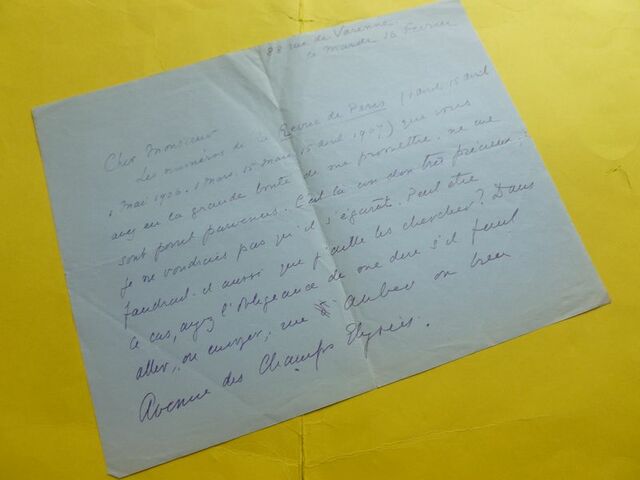 88 rue de Varenne.
ce Mardi 16 Février
Cher Monsieur
Les numéros de la Revue de Paris (1 avril, 15 avril
1 Mai 1906. 1 Mars, 15 Mars, 15 avril 1907.) que vous
avez eu la grande bonté de me promettre. ne me
sont point parvenus. C'est là un don très précieux :
je ne voudrais pas qu'il s'égarât. Peut être
faudrait-il aussi que j'aille les chercher? Dans
ce cas, ayez l'obligeance de me dire s'il faut
aller, ou envoyer, rue Auber ou bien
Avenue des Champs Elysées.